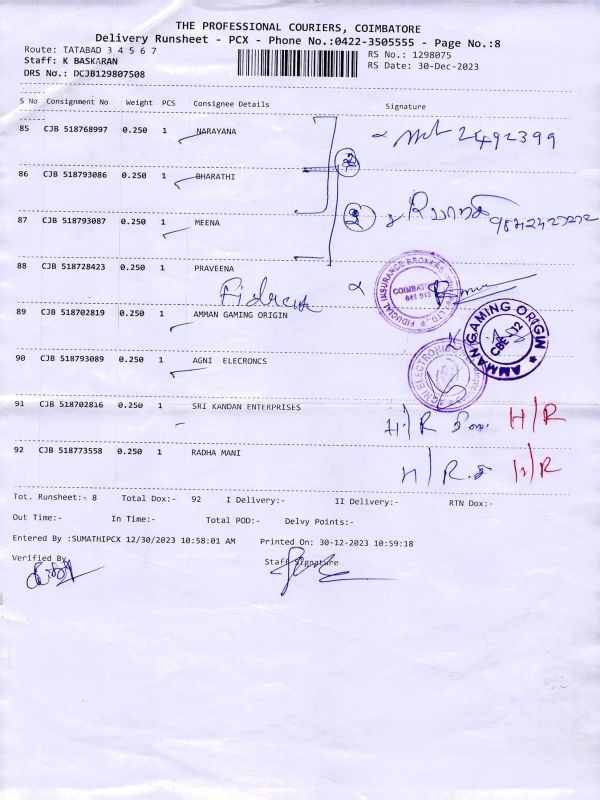 THE PROFESSIONAL COURIERS, COIMBATORE
Delivery Runsheet - PCX - Phone No.:0422-3505555 - Page No.:8
Route: TATABAD 3 4 5 6 7 RS No.: 1298075
Staff: K BASKARAN RS Date: 30-Dec-2023
DRS No.: DCJB129807508
S No Consignment No Weight PCS Consignee Details Signature
85 CJB 518768997 0.250 1 NARAYANA 2492399
86 CJB 518793086 0.250 1 BHARATHI
87 CJB 518793087 0.250 1 MEENA
88 CJB 518728423 0.250 1 PRAVEENA
FIDUCIAL INSURANCE BROKERS
COIMBATORE
641 012
89 CJB 518702819 0.250 1 AMMAN GAMING ORIGIN
AMMAN GAMING ORIGIN
CBE-12
90 CJB 518793089 0.250 1 AGNI ELECRONCS
91 CJB 518702816 0.250 1 SRI KANDAN ENTERPRISES H/R H/R
92 CJB 518773558 0.250 1 RADHA MANI H/R H/R
Tot. Runsheet:- 8 Total Dox:- 92 I Delivery:- II Delivery:- RTN Dox:-
Out Time:- In Time:- Total POD:- Delvy Points:-
Entered By :SUMATHIPCX 12/30/2023 10:58:01 AM Printed On: 30-12-2023 10:59:18
Verified By Staff Signature